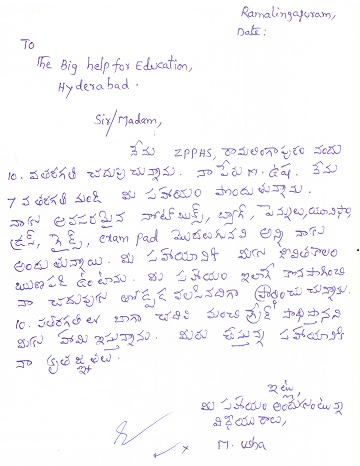 Ramalingapuram,
Date:
To
The Big help for Education,
Hyderabad.
Sir/Madam,
నేను ZPPHS, రామలింగాపురం నందు
10. వతరగతి చదువుచున్నాను. నా పేరు M. ఉష. నేను
7 వ తరగతి నుండి మీ సహాయం పొందుతున్నాను.
నాకు అవసరమైన నోట్ బుక్స్, బ్యాగ్, పెన్నులు,
డ్రస్, గైడ్స్, exam pad మొదలుగునవి అన్ని నాకు
అందుతున్నాయి. మీ సహాయానికి మీకు జీవితకాలం
ఋణపడి ఉంటాను. మీ సహాయం ఇలాగే కొనసాగించి
నా చదువుకు తోడ్పడ వలసినదిగా ప్రార్థించు చున్నాను.
10. వతరగతిలో బాగా చదివి మంచి గ్రేడ్ సాధిస్తానని
మీకు హామి ఇస్తున్నాను. మీరు చేస్తున్న సహాయానికి
నా కృతజ్ఞతలు.
ఇట్లు,
మీ సహాయం అందుకుంటున్న
విధేయురాలు,
M. Usha